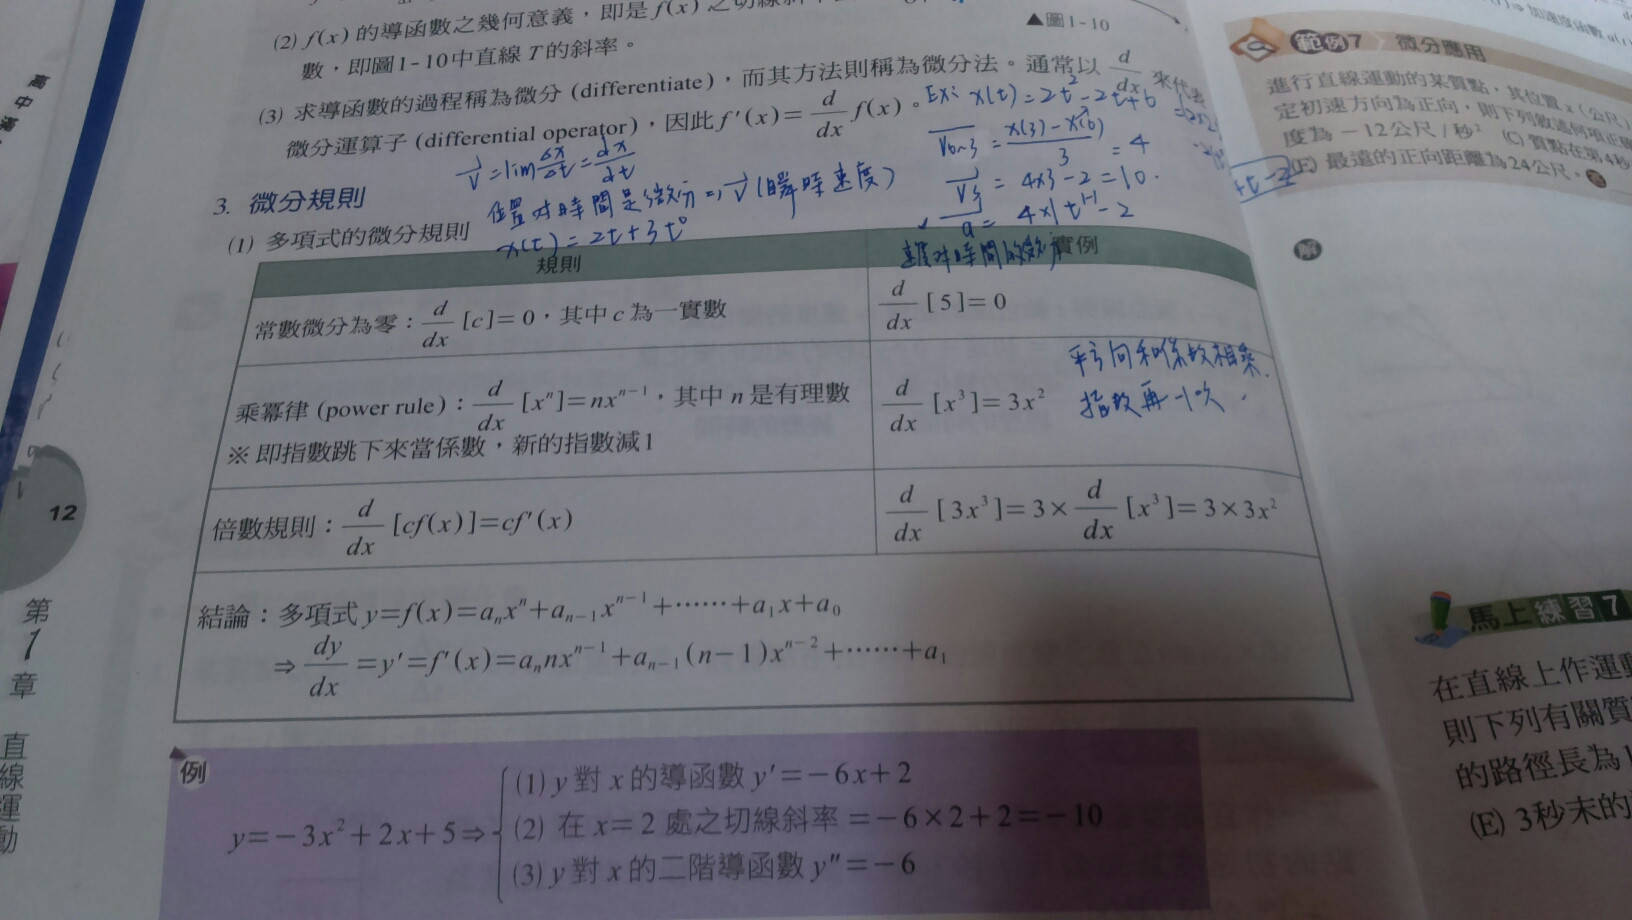 (2) f(x) 的導函數之幾何意義，即是 f(x) 之切線斜率
數，即圖1-10中直線 T 的斜率。
▲圖1-10
(3) 求導函數的過程稱為微分 (differentiate)，而其方法則稱為微分法。通常以 d/dx 來代表
微分運算子 (differential operator)，因此 f'(x)= d/dx f(x)。
Ex: x(t) = 2t² - 2t + 6
V₀~₃ = x(3) - x(0) / 3 = 4
V₃ = 4x3 - 2 = 10.
a = 4x1 t¹⁻¹ - 2
V = lim Δx/Δt = dx/dt
位置對時間是微分 => V (瞬時速度)
x(t) = 2t + 3t⁰
3. 微分規則
(1) 多項式的微分規則
規則
實例
常數微分為零：d/dx [c]= 0，其中 c 為一實數
d/dx [5]= 0
乘冪律 (power rule)：d/dx [xⁿ]=nxⁿ⁻¹，其中 n 是有理數
※ 即指數跳下來當係數，新的指數減1
d/dx [x³]= 3x²
指數再-1次
倍數規則：d/dx [cf(x)]=cf'(x)
d/dx [3x³]= 3× d/dx [x³]= 3×3x²
結論：多項式 y=f(x)=aₙxⁿ+aₙ₋₁xⁿ⁻¹+⋯⋯+a₁x+a₀
⇒ dy/dx =y'=f'(x)=aₙnxⁿ⁻¹+aₙ₋₁(n-1)xⁿ⁻²+⋯⋯+a₁
例
y=-3x²+2x+5⇒
(1) y 對 x 的導函數 y'=-6x+2
(2) 在 x=2 處之切線斜率 =-6×2+2=-10
(3) y 對 x 的二階導函數 y"=-6
12
第1章 直線運動
高中
⇒加速度函數
範例7 微分應用
進行直線運動的某質點，其位置 x (公尺)
定初速方向為正向，則下列敘述何項正確
度為 -12公尺/秒² (C) 質點在第4秒
(E) 最遠的正向距離為24公尺。答
解
馬上練習7
在直線上作運動
則下列有關質
的路徑長為1
(E) 3秒末的